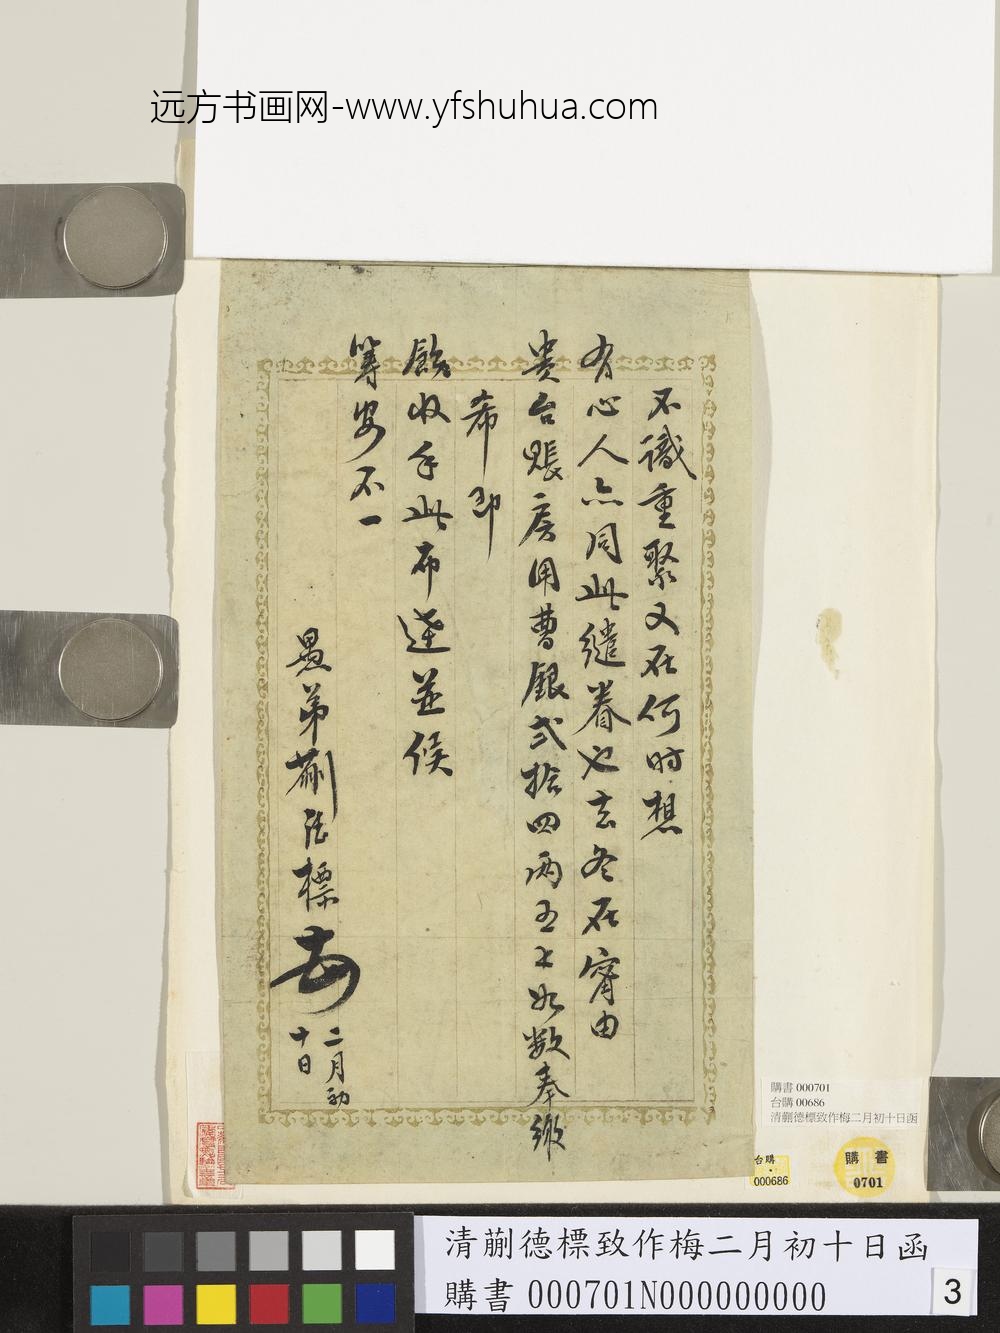 远方书画网-www.yfshuhua.com
不識重聚又在何時想
有心人亦同此繾眷也去冬在甯由
貴台賬房用曹銀弍拾四兩五士如數奉繳
希即
飭收手此布達並候
籌安不一
愚弟蒯德標
二月初
十日
購書 000701
台購 00686
清蒯德標致作梅二月初十日函
台購
000686
購書
0701
清蒯德標致作梅二月初十日函
購書 000701N000000000
3